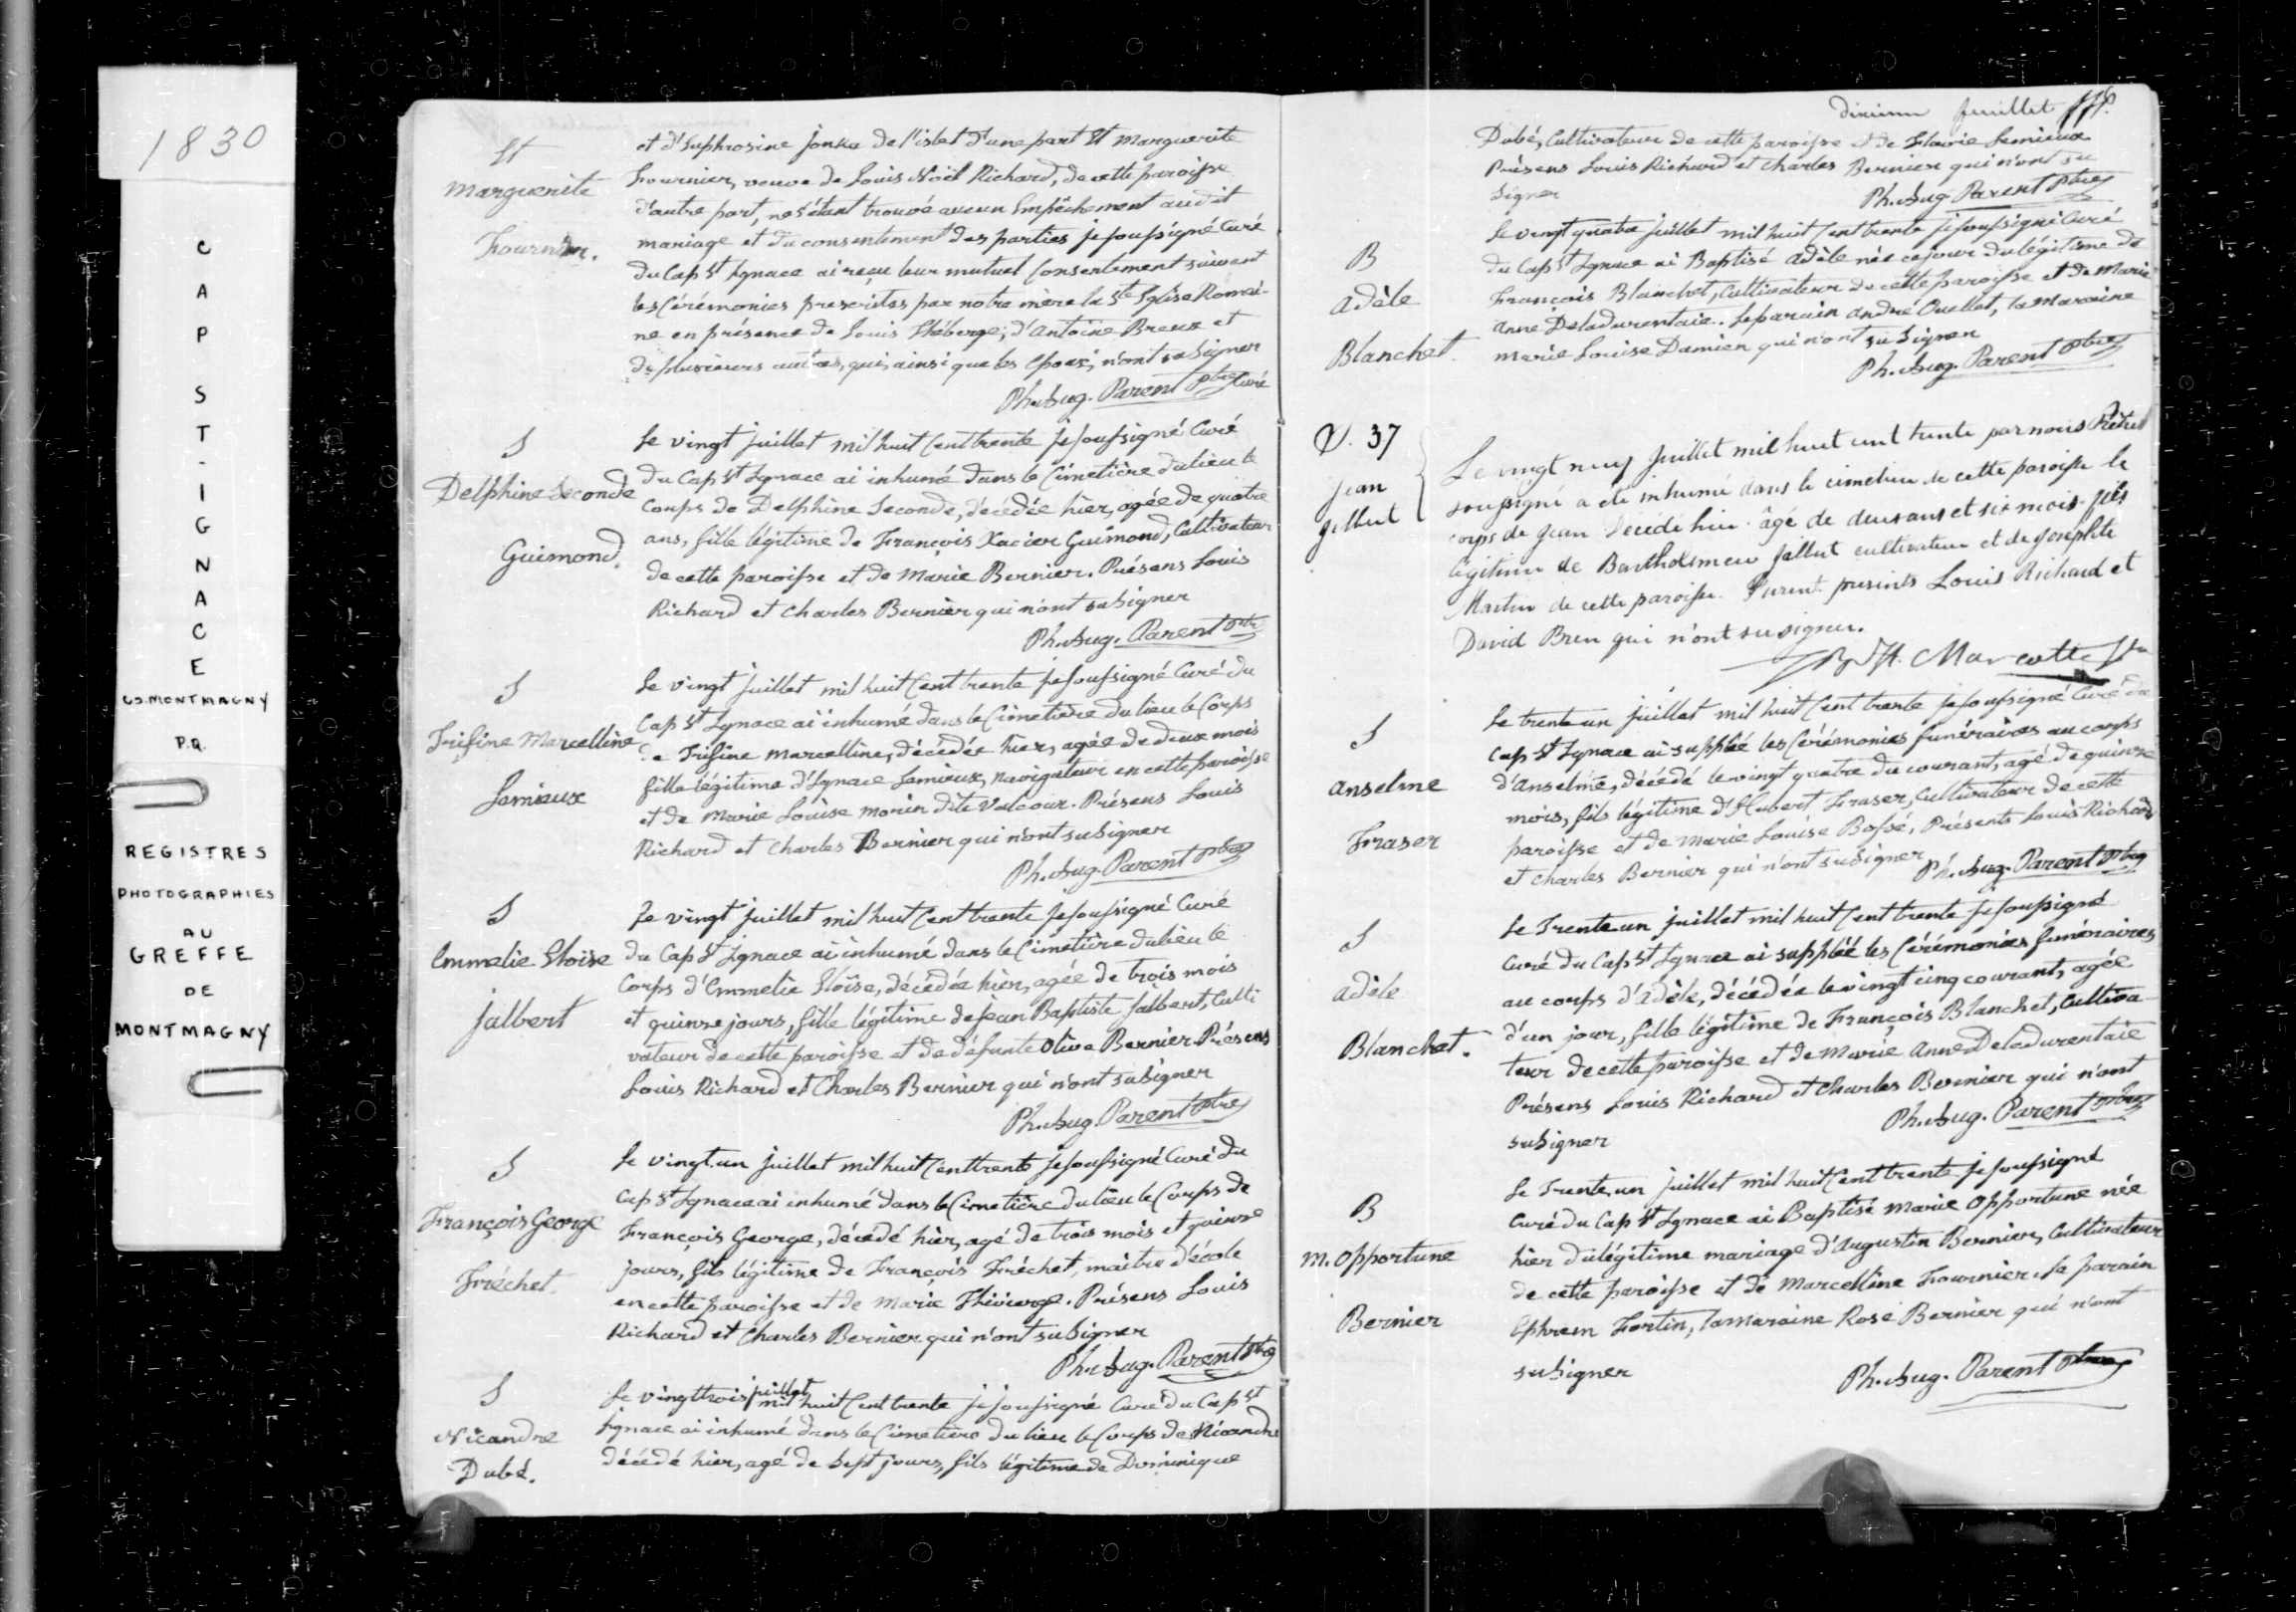 1830
CAP ST-IGNACE
CO. MONTMAGNY
P.Q.
REGISTRES
PHOTOGRAPHIES
AU
GREFFE
DE
MONTMAGNY
Et
Marguerite
Fournier.
et d'Euphrosine jonka de l'islet d'une part Et Marguerite
Fournier, veuve de Louis Noël Richard, de cette paroisse
d'autre part, ne s'étant trouvé aucun Empêchement audit
mariage et du consentement des parties je soussigné Curé
du Cap St Ignace ai reçu leur mutuel Consentement suivant
les Cérémonies prescrites par notre mère la Ste Eglise Romai-
ne en présence de Louis Théberge, d'Antoine Breux et
de plusieurs autres, qui, ainsi que les Epoux, n'ont su signer
Ph. Aug. Parent Ptre Curé
S
Delphine Seconde
Guimond.
Le vingt juillet mil huit Cent trente je soussigné Curé
du Cap St Ignace ai inhumé dans le Cimetière du lieu le
Corps de Delphine Seconde, décédée hier, agée de quatre
ans, fille légitime de François Xavier Guimond, Cultivateur
de cette paroisse et de Marie Bernier. Présens Louis
Richard et Charles Bernier qui n'ont su signer
Ph. Aug. Parent Ptre
S
Trifine Marcelline
Lemieux
Le vingt juillet mil huit Cent trente je soussigné Curé du
Cap St Ignace ai inhumé dans le Cimetière du lieu le Corps
de Trifine Marcelline, décédée hier, agée de deux mois
fille légitime d'Ignace Lemieux, navigateur en cette paroisse
et de Marie Louise Morin dite Valcour. Présens Louis
Richard et Charles Bernier qui n'ont su signer
Ph. Aug. Parent Ptre
S
Emmelie Eloise
jalbert
Le vingt juillet mil huit Cent trente je soussigné Curé
du Cap St Ignace ai inhumé dans le Cimetière du lieu le
Corps d'Emmelie Eloïse, décédée hier, agée de trois mois
et quinze jours, fille légitime de jean Baptiste jalbert, Culti
vateur de cette paroisse et de défunte Olive Bernier. Présens
Louis Richard et Charles Bernier qui n'ont su signer
Ph. Aug. Parent Ptre
S
François George
Fréchet.
Le vingt un juillet mil huit Cent trente je soussigné Curé du
Cap St Ignace ai inhumé dans le Cimetière du lieu le Corps de
François George, décédé hier, agé de trois mois et quinze
jours, fils légitime de François Fréchet, maitre d'école
en cette paroisse et de Marie Thivierge. Présens Louis
Richard et Charles Bernier qui n'ont su signer
Ph. Aug. Parent Ptre
S
Nicandre
Dubé.
Le vingt trois juillet mil huit Cent trente je soussigné Curé du Cap St
Ignace ai inhumé dans le Cimetière du lieu le Corps de Nicandre
décédé hier, agé de sept jours, fils légitime de Dominique
dixième feuillet
Dubé, Cultivateur de cette paroisse et de Flavie Lemieux
Présens Louis Richard et Charles Bernier qui n'ont su
signer
Ph. Aug. Parent Ptre
B
Adèle
Blanchet.
Le vingt quatre juillet mil huit Cent trente je soussigné Curé
du Cap St Ignace ai Baptisé Adèle née ce jour du légitime de
François Blanchet, Cultivateur de cette paroisse et de Marie
Anne Deladurentaie. Le parain André Ouellet, la Maraine
Marie Louise Damien qui n'ont su signer
Ph. Aug. Parent Ptre
S. 37
Jean
Jalbert
Le vingt neuf Juillet mil huit cent trente par nous Prêtre
soussigné a été inhumé dans le cimetière de cette paroisse le
corps de Jean décédé hier âgé de deux ans et six mois fils
légitime de Bartholomew Jalbert cultivateur et de Josephte
Martin de cette paroisse. Furent presents Louis Richard et
David Breu qui n'ont su signer.
Marcotte Ptre
S
Anselme
Fraser
Le trente un juillet mil huit Cent trente je soussigné Curé du
Cap St Ignace ai supplée les Cérémonies funéraires au corps
d'Anselme, décédé le vingt quatre du courant, agé de quinze
mois, fils légitime d'Hubert Fraser, Cultivateur de cette
paroisse et de Marie Louise Bossé. Présents Louis Richard
et Charles Bernier qui n'ont su signer Ph. Aug. Parent Ptre
S
Adèle
Blanchet.
Le Trente un juillet mil huit Cent trente je soussigné
Curé du Cap St Ignace ai supplée les Cérémonies funéraires
au corps d'Adèle, décédée le vingt cinq courant, agée
d'un jour, fille légitime de François Blanchet, Cultiva-
teur de cette paroisse et de Marie Anne Deladurentaie
Présens Louis Richard et Charles Bernier qui n'ont
su signer
Ph. Aug. Parent Ptre
B
M. Opportune
Bernier
Le Trente un juillet mil huit Cent trente je soussigné
Curé du Cap St Ignace ai Baptisé Marie Opportune née
hier du légitime mariage d'Augustin Bernier, Cultivateur
de cette paroisse et de Marcelline Fournier. Le parain
Ephrem Fortin, la maraine Rose Bernier qui n'ont
su signer
Ph. Aug. Parent Ptre